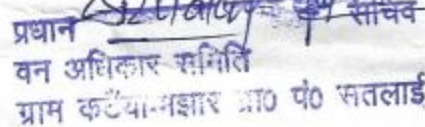 प्रधान सचिव
वन अधिकार समिति
ग्राम कटैया-मझार ग्रा0 पं0 सतलाई